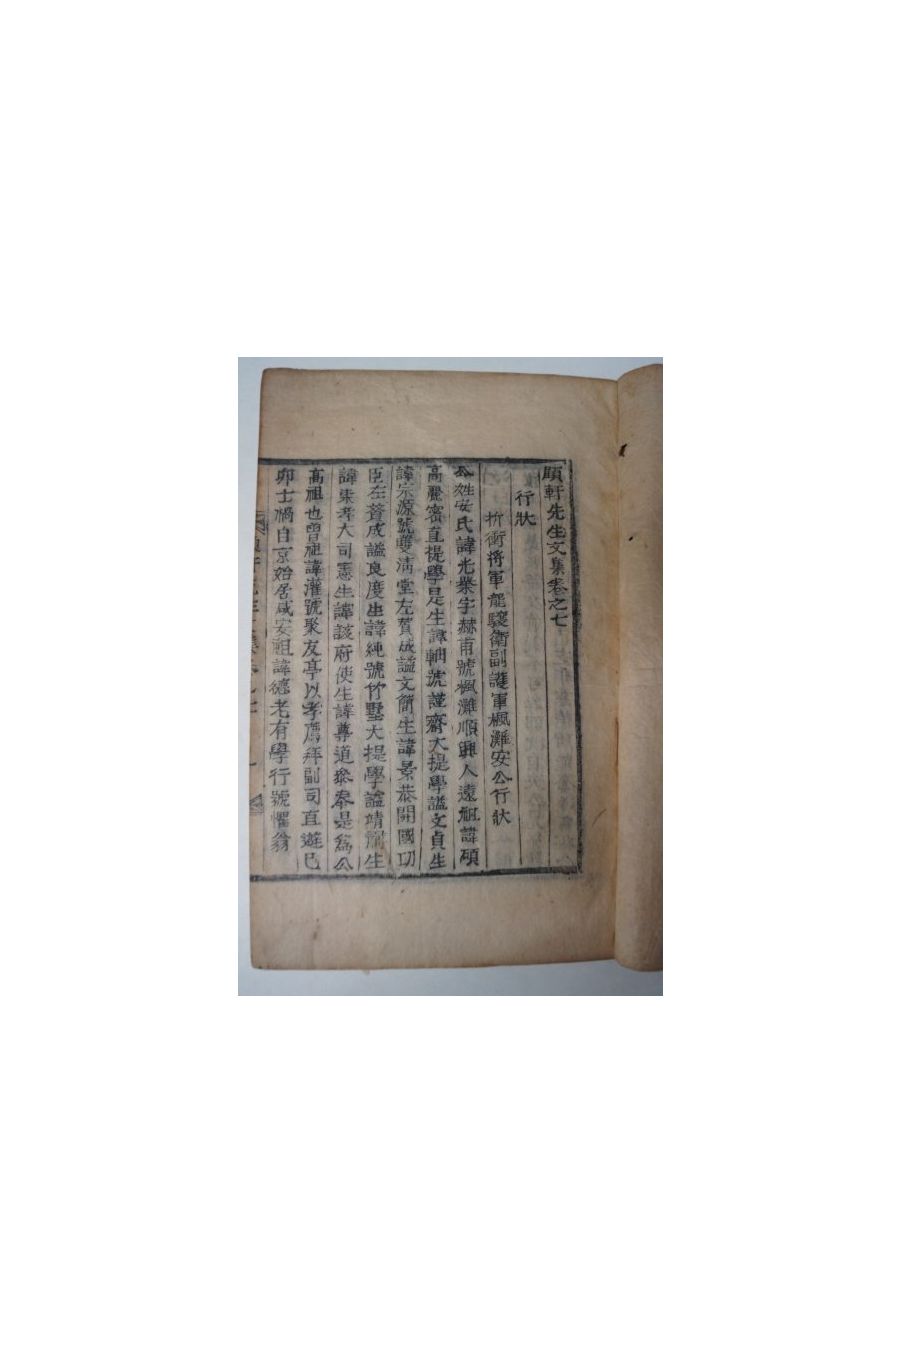 順軒先生文集卷之七
行狀
折衝將軍龍驤衛副護軍楓灘安公行狀
公姓安氏諱光業字赫甫號楓灘順興人遠祖諱碩
高麗密直提學是生諱軸號謹齋大提學謚文貞生
諱宗源號雙淸堂左贊成謚文簡生諱景恭開國功
臣左贊成謚良度生諱純號竹墅大提學謚靖肅生
諱崇孝大司憲生諱該府使生諱尊道參奉是爲公
高祖也曾祖諱灌號聚友亭以孝薦拜副司直遊己
卯士禍自京始居咸安祖諱德老有學行號懼翁